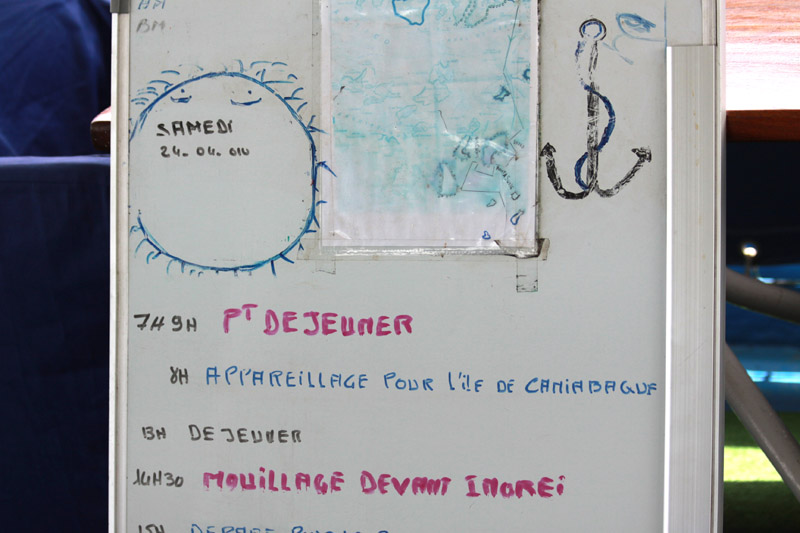 SAMEDI
24. 04. 010
7H 9H PT DEJEUNER
8H APPAREILLAGE POUR L'ÎLE DE CANIABAQUE
13H DEJEUNER
14H30 MOUILLAGE DEVANT INOREI
15H